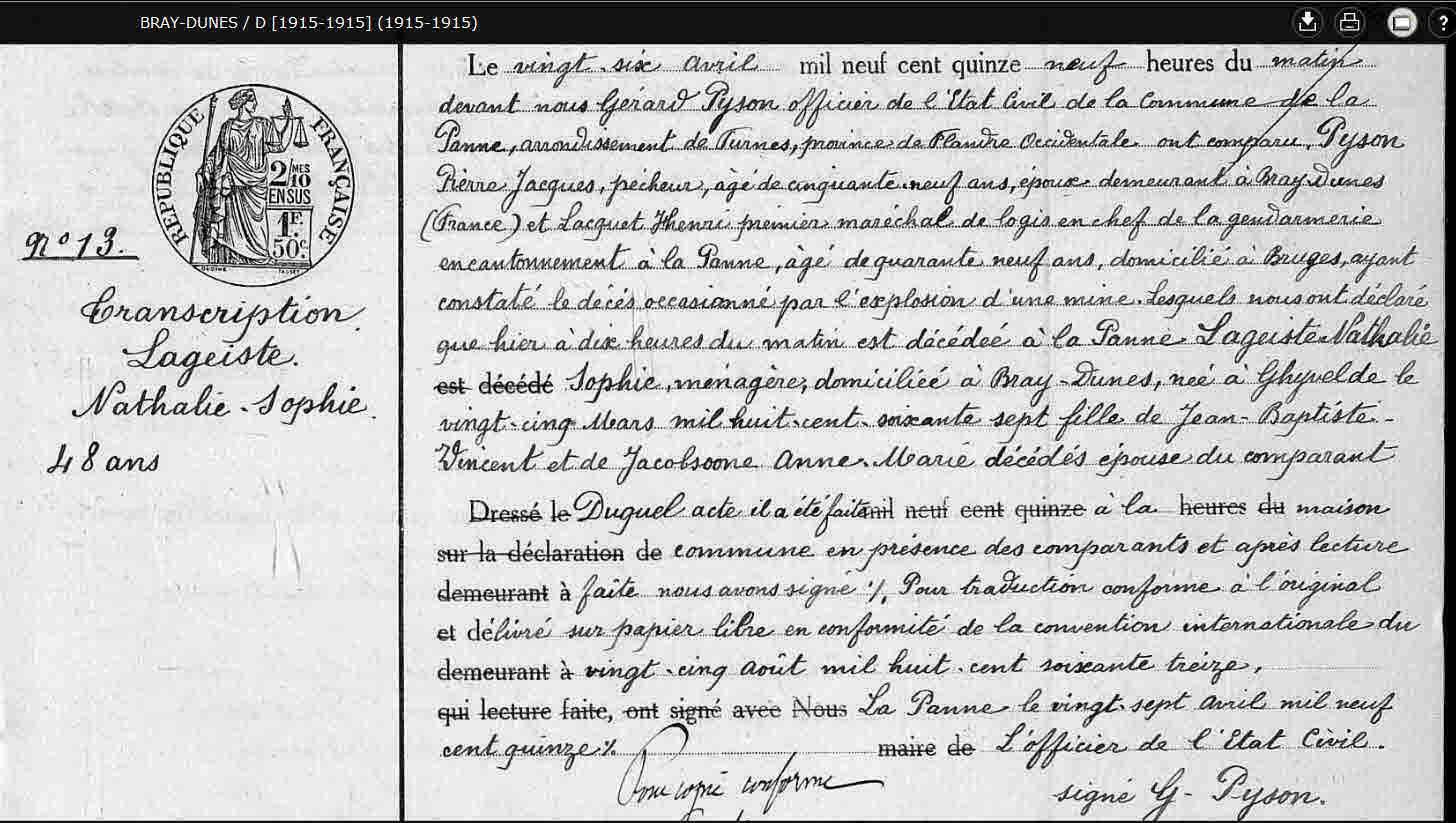 BRAY-DUNES / D [1915-1915] (1915-1915)
?
RÉPUBLIQUE FRANÇAISE
2/10 MES
EN SUS
1F.
50c.
n° 13.
Transcription
Lageiste.
Nathalie-Sophie.
48 ans
Le vingt-six avril mil neuf cent quinze neuf heures du matin
devant nous Gérard Pyson officier de l'Etat Civil de la commune de la
Panne, arrondissement de Furnes, province de Flandre Occidentale ont comparu, Pyson
Pierre Jacques, pêcheur, âgé de cinquante-neuf ans, époux demeurant à Bray-Dunes
(France) et Lacquet Hhenri premier maréchal de logis en chef de la gendarmerie
en cantonnement à la Panne, âgé de quarante neuf ans, domicilié à Bruges, ayant
constaté le décès occasionné par l'explosion d'une mine. Lesquels nous ont déclaré
que hier à dix heures du matin est décédeé à la Panne Lageiste Nathalie
est décédé Sophie, ménagère, domiciliéé à Bray-Dunes, neé à Ghyvelde le
vingt-cinq Mars mil huit-cent-soixante sept fille de Jean-Baptiste-
Vincent et de Jacobsoone Anne-Marie décédés épouse du comparant
Dressé le Duquel acte il a été fait mil neuf cent quinze à la heures du maison
sur la déclaration de commune en présence des comparants et après lecture
demeurant à faite nous avons signé ./. Pour traduction conforme à l'original
et délivré sur papier libre en conformité de la convention internationale du
demeurant à vingt-cinq août mil huit-cent soixante treize,
qui lecture faite, ont signé avec Nous La Panne le vingt-sept avril mil neuf
cent quinze ./. maire de L'officier de l'Etat Civil.
Pour copie conforme
signé G- Pyson.